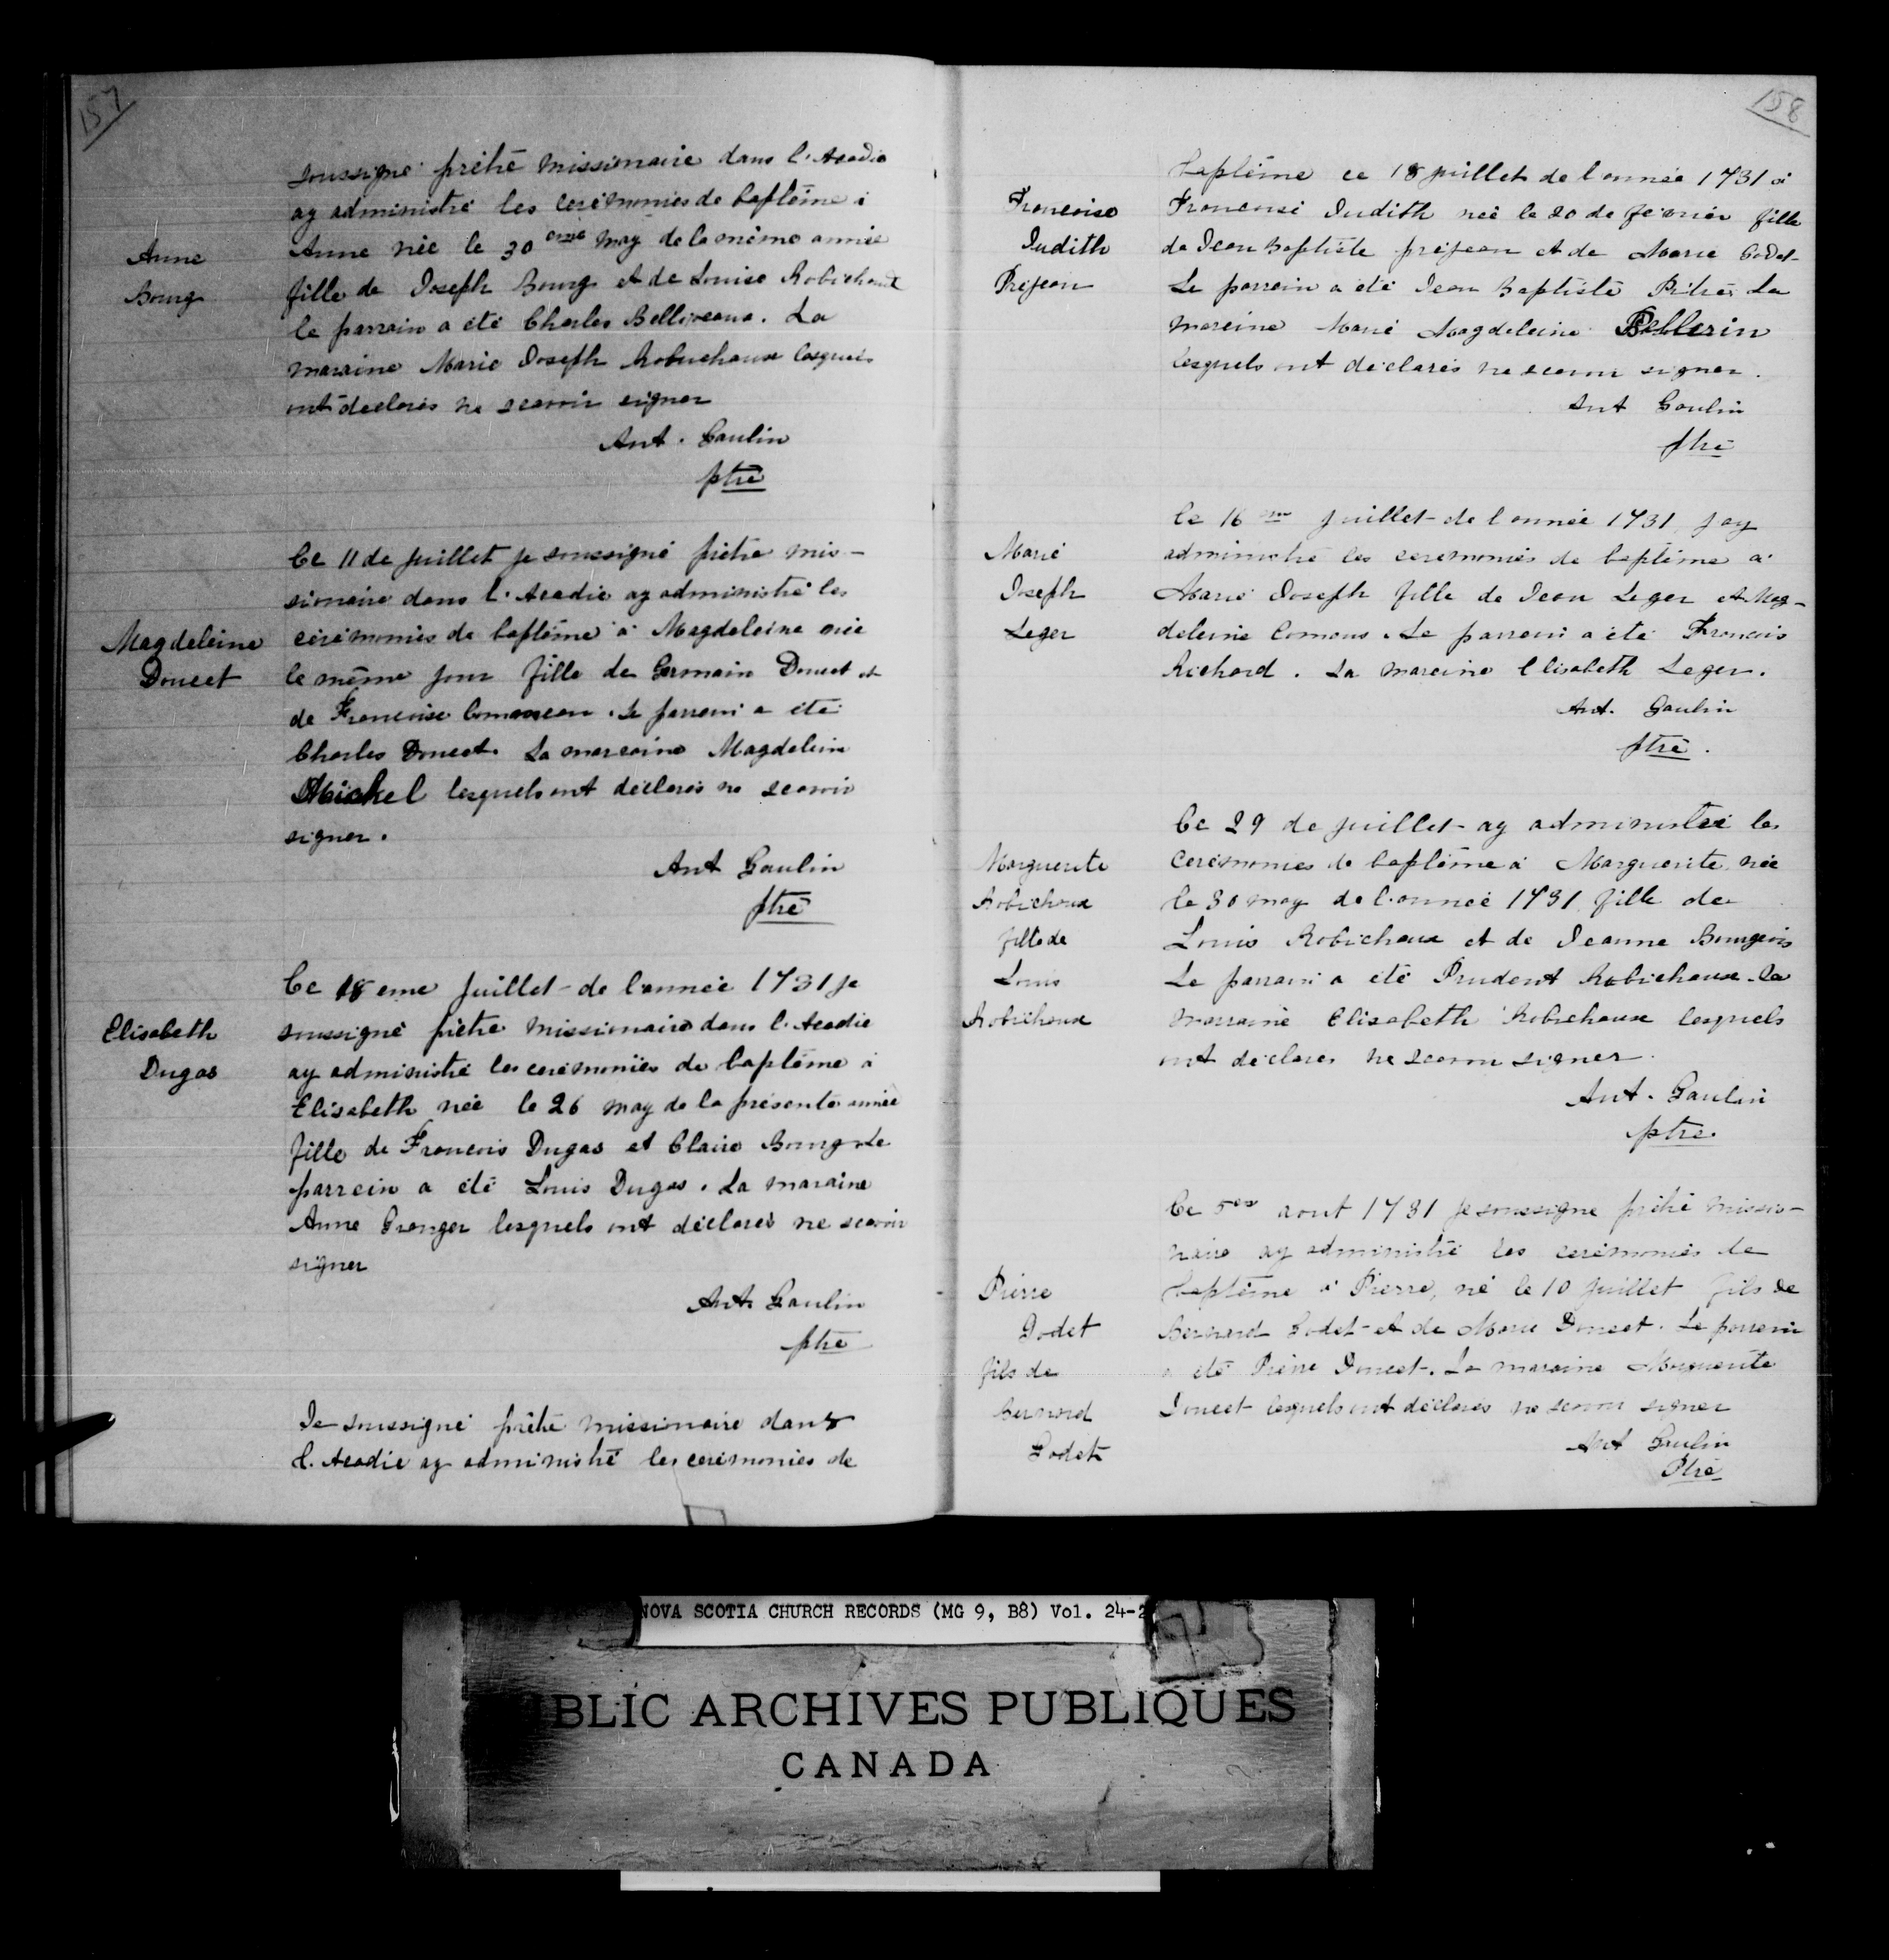 157
soussigné prêtre missionaire dans l'Acadie
ay administré les cérémonies de baptême à
Anne née le 30 eme may de la même année
fille de Joseph Bourg et de Louise Robichaux
le parrain a été Charles Belliveaux. La
maraine Marie Joseph Robichaux lesquels
ont declarés ne scavoir signer
Ant. Gaulin
ptre
Anne
Bourg
Ce 11 de juillet je soussigné prêtre mis-
sionaire dans l'Acadie ay administré les
cérémonies de baptême à Magdeleine née
le même jour fille de Germain Doucet et
de Francoise Comauxeau. Le parrain a été
Charles Doucet. La marraine Magdelein
Michel lesquels ont déclarés ne scavoir
signer.
Ant Gaulin
ptre
Magdeleine
Doucet
Ce 18 eme juillet de l'année 1731 je
soussigné prêtre missionaire dans l'Acadie
ay administré les cérémonies de baptême à
Elisabeth née le 26 may de la présente année
fille de Francois Dugas et Claire Bourg. Le
parrein a été Louis Dugas. La maraine
Anne Granger lesquels ont déclarés ne scavoir
signer
Ant. Gaulin
ptre
Elisabeth
Dugas
Je soussigné prêtre missionaire dans
l'Acadie ay administré les cérémonies de
158
baptême ce 18 juillet de l'année 1731 à
Francoise Judith née le 20 de février fille
de Jean Baptiste prejean et de Marie Godet
Le parrain a été Jean Baptiste Pitre. La
mareine Marie Magdeleine Pellerin
lesquels ont déclarés ne scavoir signer.
Ant Gaulin
ptre
Francoise
Judith
Prejean
Ce 16 me juillet de l'année 1731 jay
administré les ceremonies de baptême à
Marie Joseph fille de Jean Leger et Mag-
deleine Comaux. Le parrain a été Francois
Richard. La mareine Elisabeth Leger.
Ant. Gaulin
ptre.
Marie
Joseph
Leger
Ce 29 de juillet ay administré les
Cérémonies de baptême à Marguerite née
le 30 may de l'année 1731 fille de
Louis Robichaux et de Jeanne Bourgeois
Le parrain a été Prudent Robichaux. La
marraine Elisabeth Robichaux lesquels
ont déclarés ne scavoir signer.
Ant. Gaulin
ptre.
Marguerite
Robichaux
fille de
Louis
Robichaux
Ce 5 aout 1731 je soussigné prêtre missio-
naire ay administré les cérémonies de
baptême à Pierre, né le 10 juillet fils de
Bernard Godet et de Marie Doucet. Le parrein
a été Pierre Doucet. La maraine Marguerite
Doucet lesquels ont déclarés ne scavoir signer
Ant Gaulin
Ptre
Pierre
Godet
fils de
Bernard
Godet
NOVA SCOTIA CHURCH RECORDS (MG 9, B8) Vol. 24-2
BLIC ARCHIVES PUBLIQUES
CANADA